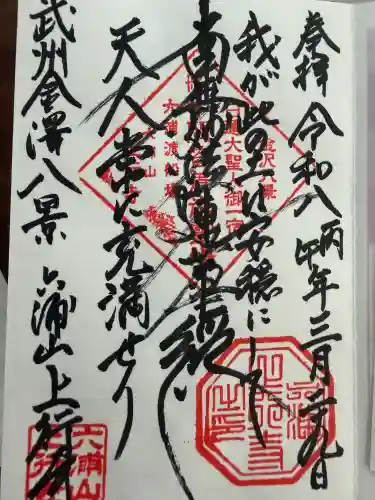 奉拝 令和八丙午年三月二十九日
我が此の土は安穏にして
南無妙法蓮華経
天人常に充満せり
武州金澤八景 六浦山上行寺
六浦山